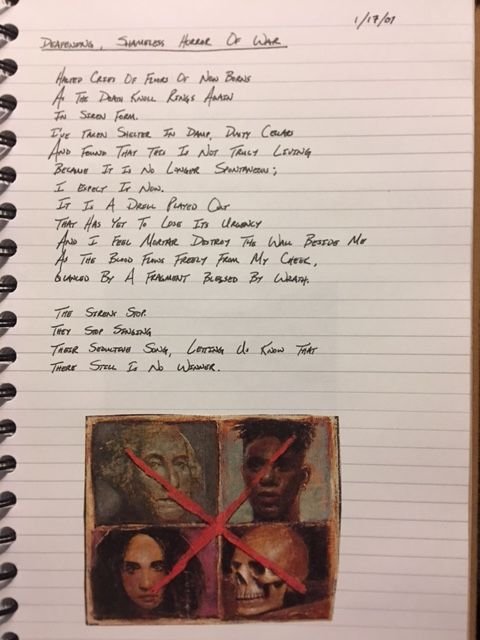 1/17/07
Deafening, Shameless Horror Of War
Halted Cries Of Fears Of New Borns
As The Death Knoll Rings Again
In Siren Form.
I've Taken Shelter In Damp, Dusty Cellars
And Found That This Is Not Truly Living
Because It Is No Longer Spontaneous;
I Expect It Now.
It Is A Drill Played Out
That Has Yet To Lose Its Urgency
And I Feel Mortar Destroy The Wall Beside Me
As The Blood Flows Freely From My Cheek,
Glanced By A Fragment Blessed By Wrath.
The Sirens Stop.
They Stop Singing
Their Seductive Song, Letting Us Know That
There Still Is No Winner.